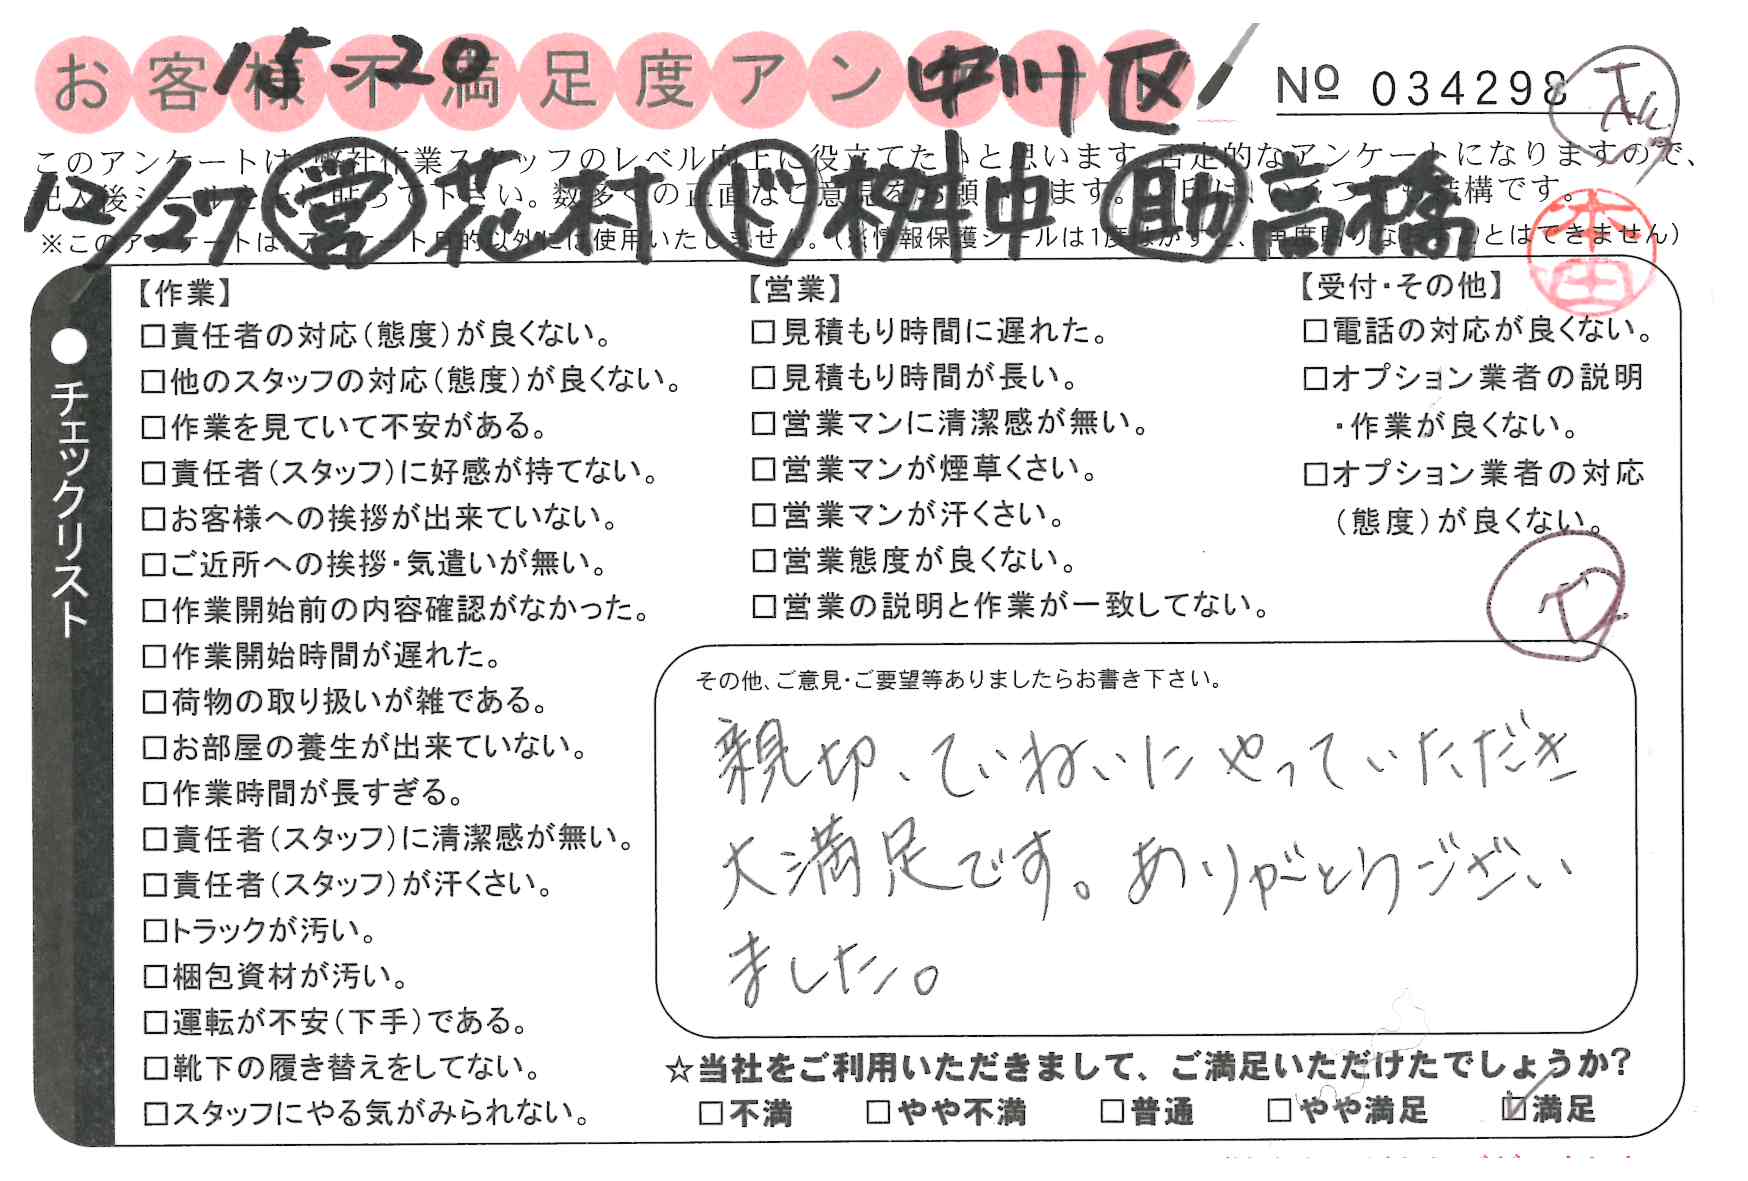 お客様不満足度アンケート
15-20 中川区
No 034298
このアンケートは、弊社作業スタッフのレベル向上に役立てたいと思います。否定的なアンケートになりますので、
記入後シールを上に貼って下さい。数多くの正直なご意見をお願いします。
12/27 営 花村 ド 桝中 助 高橋
※このアンケートは、アンケート目的以外には使用いたしません。(※情報保護シールは1度はがすと、再度貼りなおすことはできません)
本田
●チェックリスト
【作業】
□責任者の対応(態度)が良くない。
□他のスタッフの対応(態度)が良くない。
□作業を見ていて不安がある。
□責任者(スタッフ)に好感が持てない。
□お客様への挨拶が出来ていない。
□ご近所への挨拶・気遣いが無い。
□作業開始前の内容確認がなかった。
□作業開始時間が遅れた。
□荷物の取り扱いが雑である。
□お部屋の養生が出来ていない。
□作業時間が長すぎる。
□責任者(スタッフ)に清潔感が無い。
□責任者(スタッフ)が汗くさい。
□トラックが汚い。
□梱包資材が汚い。
□運転が不安(下手)である。
□靴下の履き替えをしてない。
□スタッフにやる気がみられない。
【営業】
□見積もり時間に遅れた。
□見積もり時間が長い。
□営業マンに清潔感が無い。
□営業マンが煙草くさい。
□営業マンが汗くさい。
□営業態度が良くない。
□営業の説明と作業が一致してない。
【受付・その他】
□電話の対応が良くない。
□オプション業者の説明
・作業が良くない。
□オプション業者の対応
(態度)が良くない。
その他、ご意見・ご要望等ありましたらお書き下さい。
親切、ていねいにやっていただき
大満足です。ありがとうござい
ました。
☆当社をご利用いただきまして、ご満足いただけたでしょうか?
□不満 □やや不満 □普通 □やや満足 ☑満足